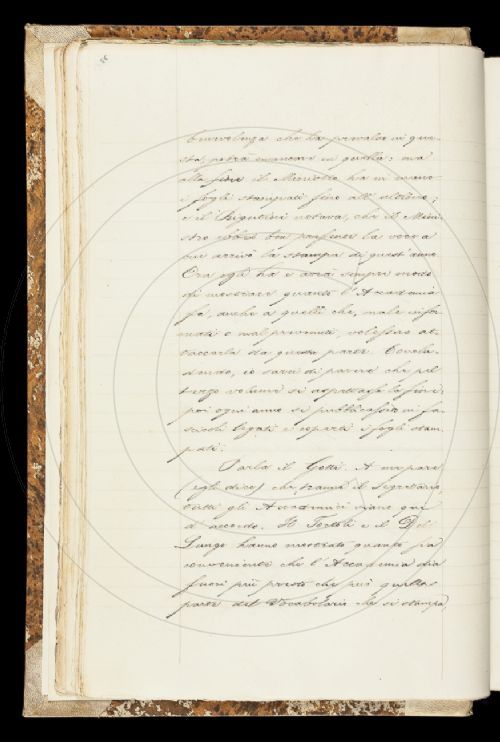 benevolenza che ha prevalso in que-
sta, potrà mancare in quella: ma
alla fine il Ministro ha in mano
i fogli stampati fino all'ultimo;
e il Bigutini notava, che il Mini-
stro potrà ben
cui arrivò la stampa di quest'anno.
Ora egli ha e avrà sempre modo
di mostrare quanto l'Accademia
fa, anche a quelli che, male infor-
mati e mal prevenuti, volessero at-
taccarla da questa parte. Conclu-
dendo, io sarei di parere che pel
terzo volume si aspettasse la fine;
poi ogni anno si pubblicassero in fa-
scicoli legati e coperti i fogli stam-
pati.
Parla il Gotti. A me pare
(egli dice) che, tranne il Segretario,
tutti gli Accademici siano qui
d'accordo. Il Tortoli e il Del
Lungo hanno mostrato quanto sia
conveniente che l'Accademia dia
fuori più presto che può quella
parte del Vocabolario che si stampa